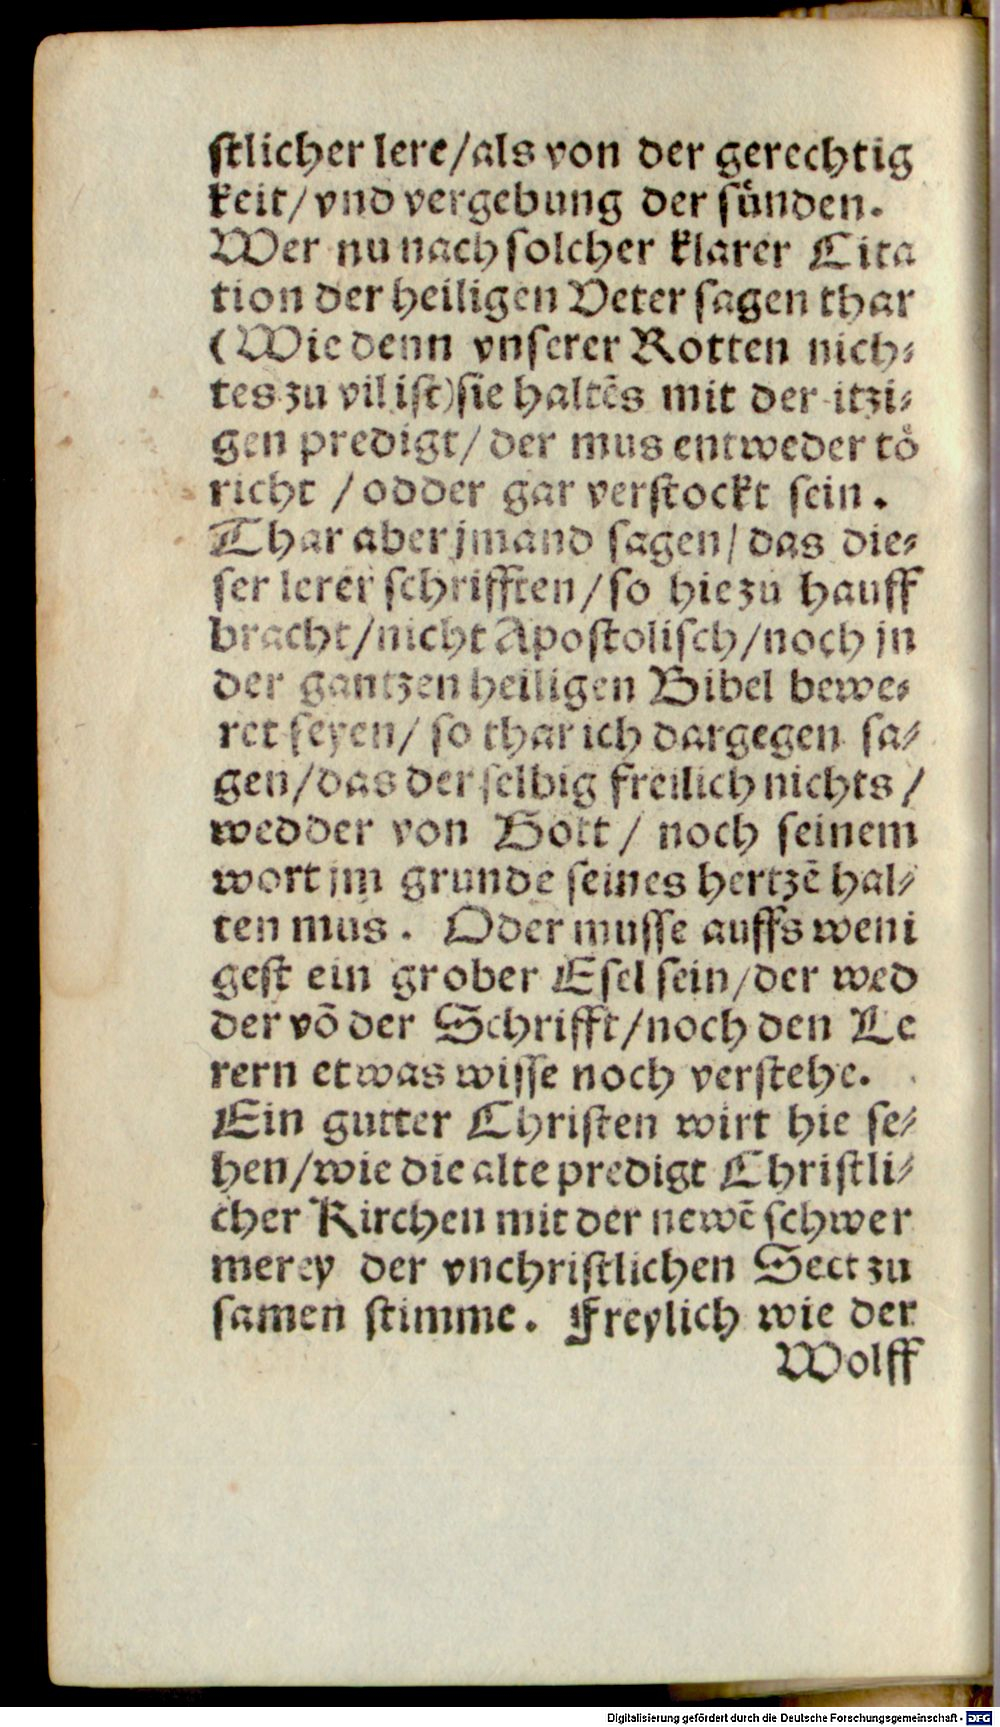 stlicher lere/als von der gerechtig
keit/vnd vergebung der sünden.
Wer nu nach solcher klarer Cita
tion der heiligen Veter sagen thar
(Wie denn vnserer Rotten nich⸗
tes zu vil ist)sie haltẽs mit der itzi⸗
gen predigt/der mus entweder tö
richt /odder gar verstockt sein.
Thar aber jmand sagen/das die⸗
ser lerer schrifften/so hiezu hauff
bracht/nicht Apostolisch/noch jn
der gantzen heiligen Bibel bewe⸗
ret seyen/so thar ich dargegen sa⸗
gen/das der selbig freilich nichts/
wedder von Gott/noch seinem
wort jm grunde seines hertzẽ hal⸗
ten mus. Oder musse auffs weni
gest ein grober Esel sein/der wed
der võ der Schrifft/noch den Le
rern etwas wisse noch verstehe.
Ein gutter Christen wirt hie se⸗
hen/wie die alte predigt Christli⸗
cher Kirchen mit der newẽ schwer
merey der vnchristlichen Sect zu
samen stimme. Freylich wie der
Wolff
Digitalisierung gefördert durch die Deutsche Forschungsgemeinschaft - DFG